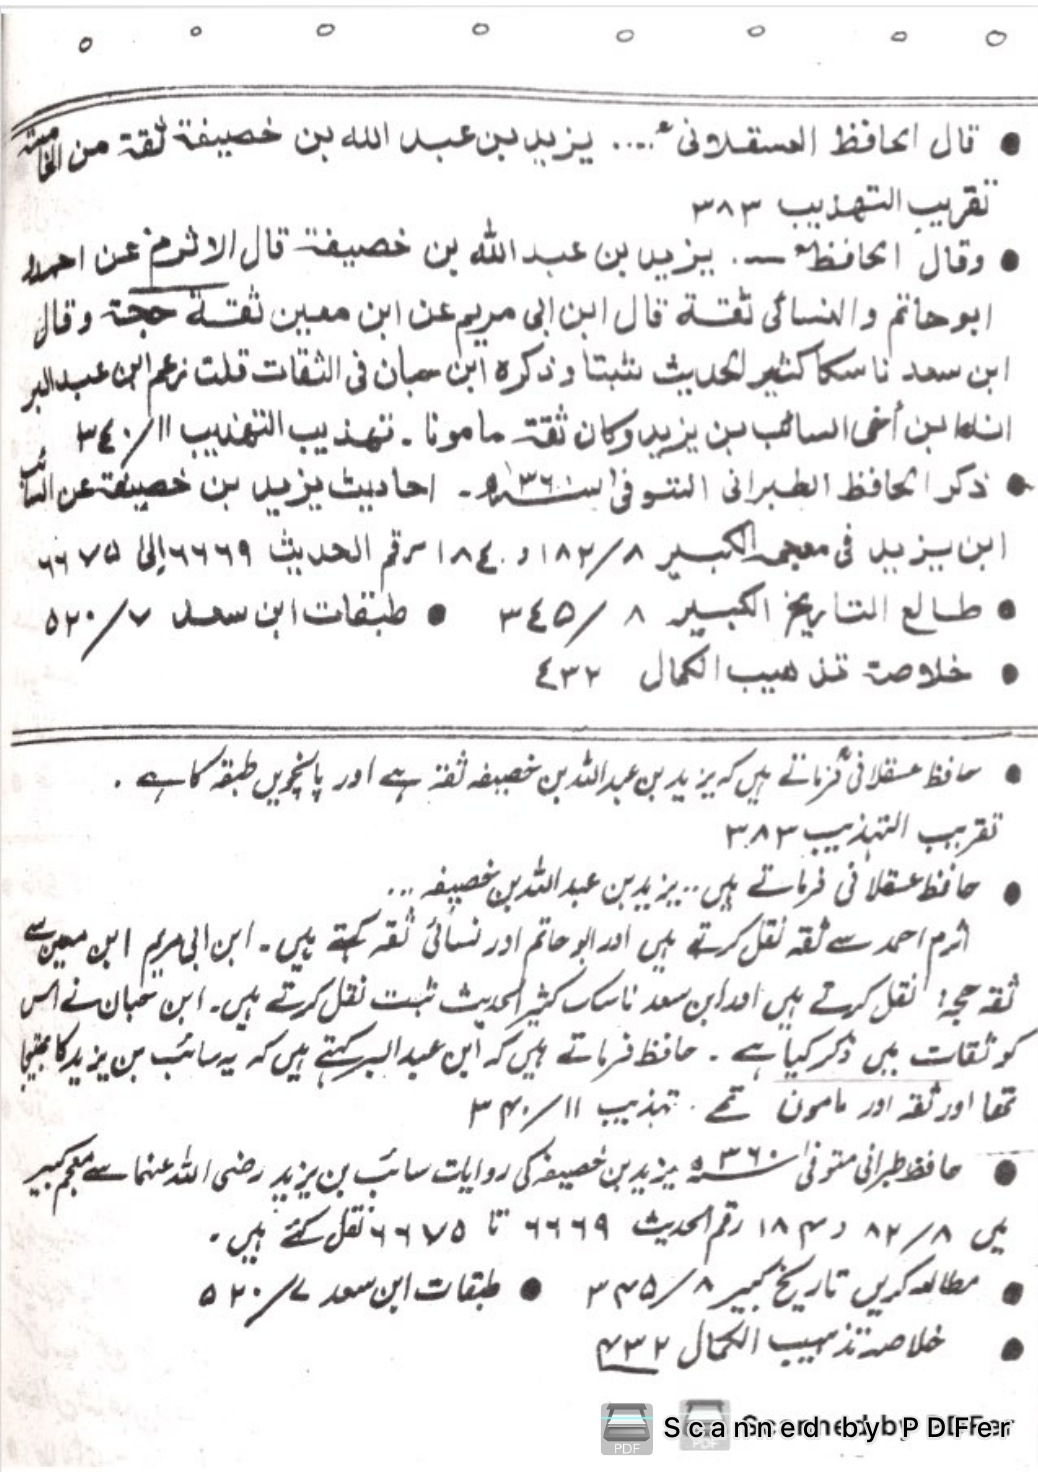 ● قال الحافظ العسقلانی ؒ .... یزید بن عبد الله بن خصیفة ثقة من الخامسة
تقریب التهذیب ٣٨٣
● وقال الحافظ ؒ ـــ . یزید بن عبد الله بن خصیفة قال الاثرم عن احمد و
ابو حاتم و النسائی ثقة قال ابن ابی مریم عن ابن معین ثقة حجة وقال
ابن سعد ناسکا کثیر الحدیث ثبتا و ذکره ابن حبان فی الثقات قلت زعم ابن عبد البر
انه ابن أخی السائب بن یزید وکان ثقة مامونا ۔ تهذیب التهذیب ١١/٣٤٠
● ذکر الحافظ الطبرانی المتوفی ٣٦٠ھ ۔ احادیث یزید بن خصیفة عن السائب
ابن یزید فی معجمه الکبیر ٨/١٨٢ و ١٨٤ رقم الحدیث ٦٦٦٩ إلی ٦٦٧٥
● طالع التاریخ الکبیر ٨/٣٤٥ ● طبقات ابن سعد ٧/٥٢٠
● خلاصة تذهیب الکمال ٤٣٢
● حافظ عسقلانی ؒ فرماتے ہیں کہ یزید بن عبد اللہ بن خصیفہ ثقة ہے اور پانچویں طبقہ کا ہے ۔
تقریب التہذیب ۳۸۳
● حافظ عسقلانی فرماتے ہیں .. یزید بن عبد اللہ بن خصیفہ ...
اثرم احمد سے ثقہ نقل کرتے ہیں اور ابو حاتم اور نسائی ثقہ کہتے ہیں ۔ ابن ابی مریم ابن معین سے
ثقہ حجۃ نقل کرتے ہیں اور ابن سعد ناسک کثیر الحدیث ثبت نقل کرتے ہیں ۔ ابن حبان نے اس
کو ثقات میں ذکر کیا ہے ۔ حافظ فرماتے ہیں کہ ابن عبد البر کہتے ہیں کہ یہ سائب بن یزید کا بھتیجا
تھا اور ثقہ اور مامون تھے ۔ تہذیب ۱۱/۳۴۰
● حافظ طبرانی متوفی ۳۶۰ھ یزید بن خصیفہ کی روایات سائب بن یزید رضی اللہ عنہما سے معجم کبیر
میں ۸/۸۲ و ۱۸۴ رقم الحدیث ۶۶۶۹ تا ۶۶۷۵ نقل کئے ہیں ۔
● مطالعہ کریں تاریخ کبیر ۸/۳۴۵ ● طبقات ابن سعد ۷/۵۲۰
● خلاصہ تذہیب الکمال ۴۳۲
Scanned by PDFer